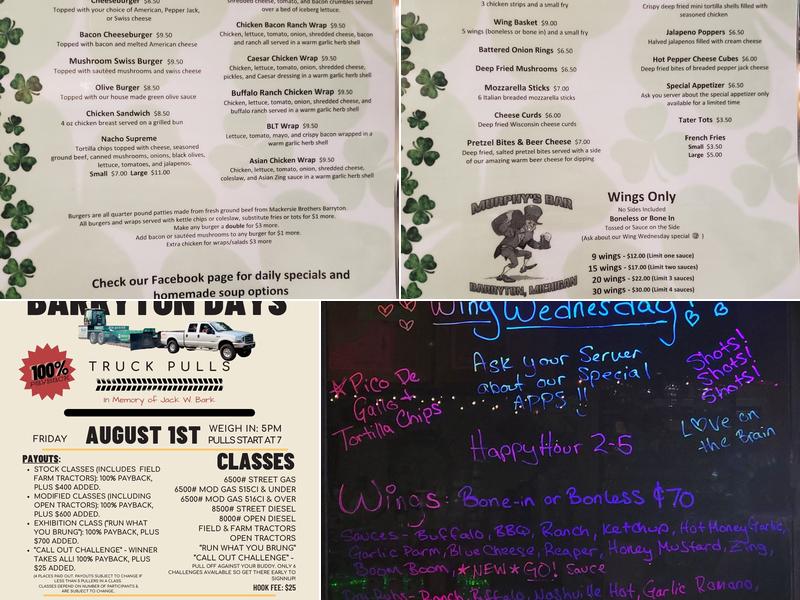 Cheeseburger $8.50
Topped with your choice of American, Pepper Jack,
or Swiss cheese
Bacon Cheeseburger $9.50
Topped with bacon and melted American cheese
Mushroom Swiss Burger $9.50
Topped with sautéed mushrooms and swiss cheese
Olive Burger $8.50
Topped with our house made green olive sauce
Chicken Sandwich $8.50
4 oz chicken breast served on a grilled bun
Nacho Supreme
Tortilla chips topped with cheese, seasoned
ground beef, canned mushrooms, onions, black olives,
lettuce, tomatoes, and jalapenos.
Small $7.00 Large $11.00
shredded cheese, tomato, and bacon crumbles served
over a bed of iceberg lettuce.
Chicken Bacon Ranch Wrap $9.50
Chicken, lettuce, tomato, onion, shredded cheese, bacon
and ranch all served in a warm garlic herb shell
Caesar Chicken Wrap $9.50
Chicken, lettuce, tomato, onion, shredded cheese,
pickles, and Caesar dressing in a warm garlic herb shell
Buffalo Ranch Chicken Wrap $9.50
Chicken, lettuce, tomato, onion, shredded cheese, and
buffalo ranch served in a warm garlic herb shell
BLT Wrap $9.50
Lettuce, tomato, mayo, and crispy bacon wrapped in a
warm garlic herb shell
Asian Chicken Wrap $9.50
Chicken, lettuce, tomato, onion, shredded cheese,
coleslaw, and Asian Zing sauce in a warm garlic herb shell
Burgers are all quarter pound patties made from fresh ground beef from Mackersie Brothers Barryton.
All burgers and wraps served with kettle chips or coleslaw, substitute fries or tots for $1 more.
Make any burger a double for $3 more.
Add bacon or sautéed mushrooms to any burger for $1 more.
Extra chicken for wraps/salads $3 more
Check our Facebook page for daily specials and
homemade soup options
3 chicken strips and a small fry
Wing Basket $9.00
5 wings (boneless or bone in) and a small fry
Battered Onion Rings $6.50
Deep Fried Mushrooms $6.50
Mozzarella Sticks $7.00
6 Italian breaded mozzarella sticks
Cheese Curds $6.00
Deep fried Wisconsin cheese curds
Pretzel Bites & Beer Cheese $7.00
Deep fried, salted pretzel bites served with a side
of our amazing warm beer cheese for dipping
Crispy deep fried mini tortilla shells filled with
seasoned chicken
Jalapeno Poppers $6.50
Halved jalapenos filled with cream cheese
Hot Pepper Cheese Cubes $6.00
Deep fried bites of breaded pepper jack cheese
Special Appetizer $6.50
Ask you server about the special appetizer only
available for a limited time
Tater Tots $3.50
French Fries
Small $3.50
Large $5.00
MURPHY'S BAR
BARRYTON, MICHIGAN
Wings Only
No Sides Included
Boneless or Bone In
Tossed or Sauce on the Side
(Ask about our Wing Wednesday special )
9 wings - $12.00 (Limit one sauce)
15 wings - $17.00 (Limit two sauces)
20 wings - $22.00 (Limit 3 sauces)
30 wings - $30.00 (Limit 4 sauces)
BARRYTON DAYS
100%
PAYBACK
TRUCK PULLS
In Memory of Jack W. Bark
FRIDAY AUGUST 1ST WEIGH IN: 5PM
PULLS START AT 7
PAYOUTS:
• STOCK CLASSES (INCLUDES FIELD
FARM TRACTORS): 100% PAYBACK,
PLUS $400 ADDED.
• MODIFIED CLASSES (INCLUDING
OPEN TRACTORS): 100% PAYBACK,
PLUS $600 ADDED.
• EXHIBITION CLASS ("RUN WHAT
YOU BRUNG"): 100% PAYBACK, PLUS
$700 ADDED.
• "CALL OUT CHALLENGE" - WINNER
TAKES ALL! 100% PAYBACK, PLUS
$25 ADDED.
(4 PLACES PAID OUT, PAYOUTS SUBJECT TO CHANGE IF
LESS THAN 5 PULLERS IN A CLASS.
CLASSES DEPEND ON NUMBER OF PARTICIPANTS &
ARE SUBJECT TO CHANGE.
CLASSES
6500# STREET GAS
6500# MOD GAS 515CI & UNDER
6500# MOD GAS 516CI & OVER
8500# STREET DIESEL
8000# OPEN DIESEL
FIELD & FARM TRACTORS
OPEN TRACTORS
"RUN WHAT YOU BRUNG"
"CALL OUT CHALLENGE" -
PULL OFF AGAINST YOUR BUDDY. ONLY 6
CHALLENGES AVAILABLE SO GET THERE EARLY TO
SIGNNUP!
HOOK FEE: $25
Wing Wednesday!
Ask your Server
about our Special
APPS !!
Shots!
Shots!
Shots!
*Pico De
Gallo +
Tortilla Chips
Happy Hour 2-5
Love on
the Brain
Wings: Bone-in or Bonless $.70
Sauces - Buffalo, BBQ, Ranch, Ketchup, Hot Honey Garlic,
Garlic Parm, Blue Cheese, Reaper, Honey Mustard, Zing,
Boom Boom, *NEW* GO! Sauce
Dry Rubs - Ranch, Buffalo, Nashville Hot, Garlic Romano,